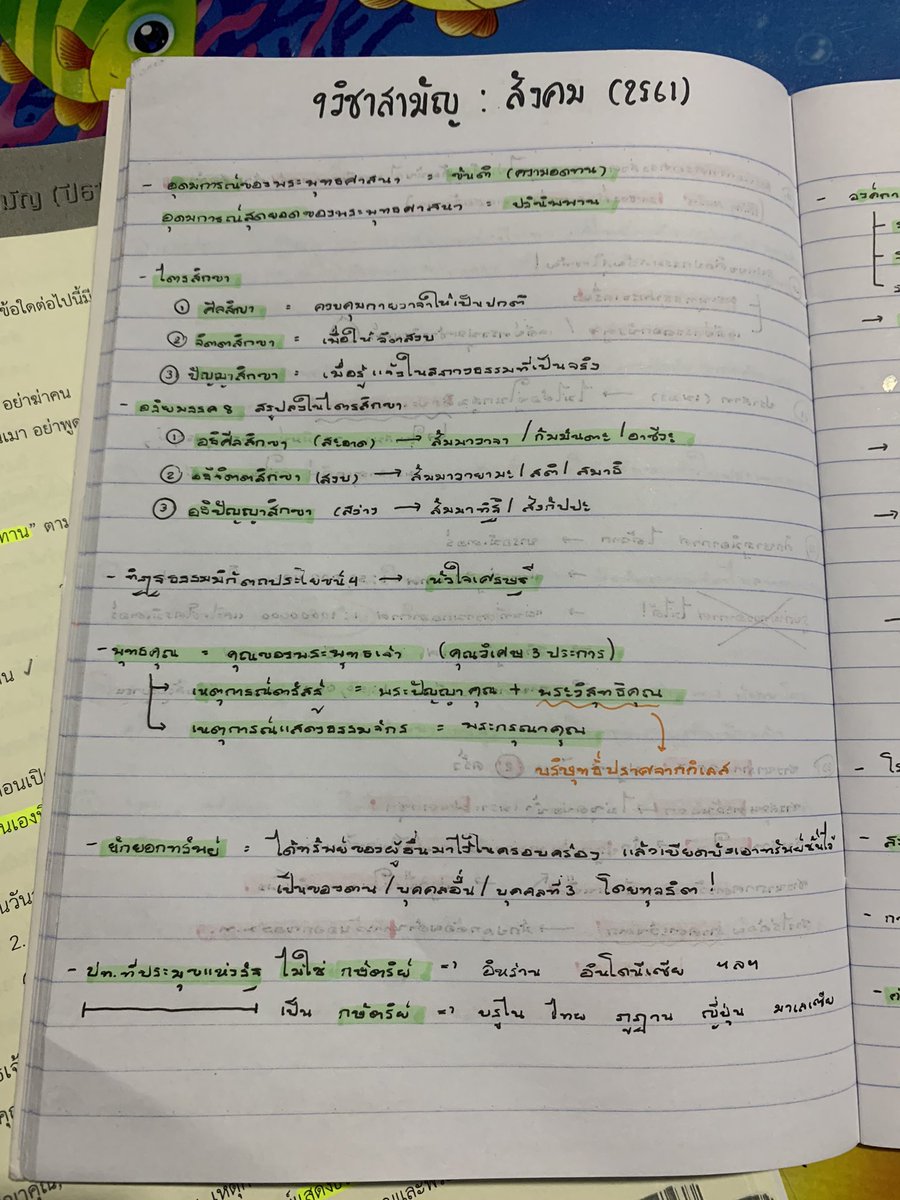 9วิชาสามัญ : สังคม (2561)
- อุดมการณ์ของพระพุทธศาสนา = ขันติ (ความอดทาน)
อุดมการณ์สุดยอดของพระพุทธศาสนา = ปรินิพพาน
- ไตรสิกขา
① ศีลสิกขา = ควบคุมกายวาจาให้เป็นปกติ
② จิตตสิกขา = เพื่อให้จิตสงบ
③ ปัญญาสิกขา = เพื่อรู้แจ้งในสภาวธรรมที่เป็นจริง
- อริยมรรค 8 สรุปลงในไตรสิกขา
① อธิศีลสิกขา (สะอาด) → สัมมาวาจา / กัมมันตะ / อาชีวะ
② อธิจิตตสิกขา (สงบ) → สัมมาวายามะ / สติ / สมาธิ
③ อธิปัญญาสิกขา (สว่าง → สัมมาทิฐิ / สังกัปปะ
- ทิฏฐธรรมมิกัตถประโยชน์ 4 → หัวใจเศรษฐี
- พุทธคุณ = คุณของพระพุทธเจ้า (คุณวิเศษ 3 ประการ)
เหตุการณ์ตรัสรู้ = พระปัญญาคุณ + พระวิสุทธิคุณ
เหตุการณ์แสดงธรรมจักร = พระกรุณาคุณ
บริษุทธิ์ปราศจากกิเลส
- ยักยอกทรัพย์ = ได้ทรัพย์ของผู้อื่นมาไว้ในครอบครอง แล้วเบียดบังเอาทรัพย์นั้นไว้
เป็นของตน / บุคคลอื่น / บุคคลที่ 3 โดยทุจริต !
- ปท. ที่ประมุขแห่งรัฐ ไม่ใช่ กษัตริย์ => อิหร่าน อินโดนีเซีย ฯลฯ
เป็น กษัตริย์ => บรูไน ไทย ภูฏาน ญี่ปุ่น มาเลเซีย
ข้อใดต่อไปนี้มี
อย่าฆ่าคน
ทาน" ตาม
2.
- องค์กา